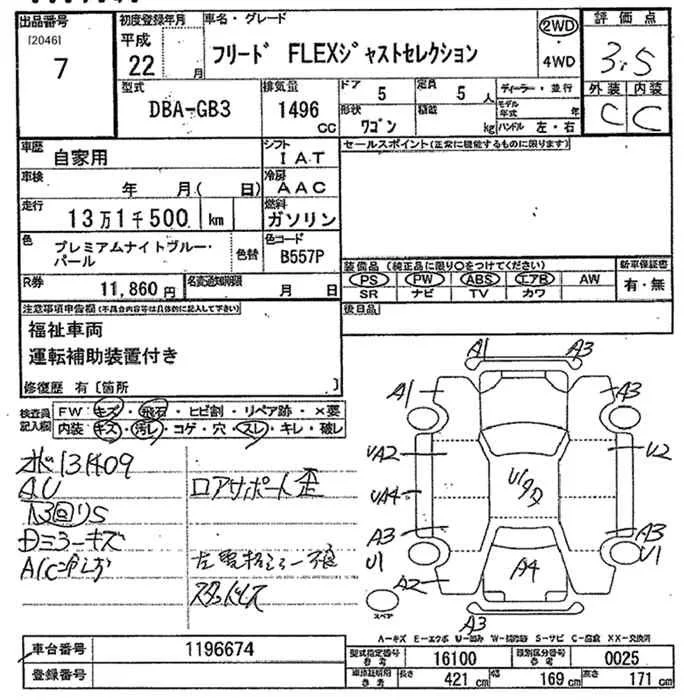 出品番号 初度登録年月 車名・グレード ②WD 評価点
[2046]
7 平成 22 月 フリード FLEXジャストセレクション ・ 4WD 3.5
型式 排気量 ドア 5 定員 5人 ディーラー・並行 外装 内装
DBA-GB3 1496 CC 形状 ワゴン 積載 kg モデル年式 年 ハンドル 左・右 C C
車歴 自家用 シフト IAT セールスポイント(正常に機能するものに限ります)
車検 年 月( 日) 冷房 AAC
走行 13万1千500 km 燃料 ガソリン
色 プレミアムナイトブルー・パール 色替 色コード B557P
装備品 (純正品に限り○をつけてください) 新車保証書
PS PW ABS エアB AW 有・無
SR ナビ TV カワ
R券 11,860円 名変通知期限 月 日
注意事項申告欄(不具合内容等は具体的に記入して下さい) 後日品
福祉車両
運転補助装置付き
修復歴 有 〔箇所 〕
検査員記入欄 FW キズ・飛石・ヒビ割・リペア跡・×要
内装 キズ・汚レ・コゲ・穴・スレ・キレ・破レ
A1 A3
A1 A3
UA2 U2
UA4
A3 A3
U1 U1
A2 A4
A3
スペア
131409
AU
ロアサポート歪
Dミラーキズ
A/C
A-キズ E-エクボ U-凹み W-補修跡 S-サビ C-腐食 XX-交換済
車台番号 1196674 型式指定番号 参考 16100 類別区分番号 参考 0025
登録番号 車検証明用 参考 長さ 421 cm 幅 169 cm 高さ 171 cm